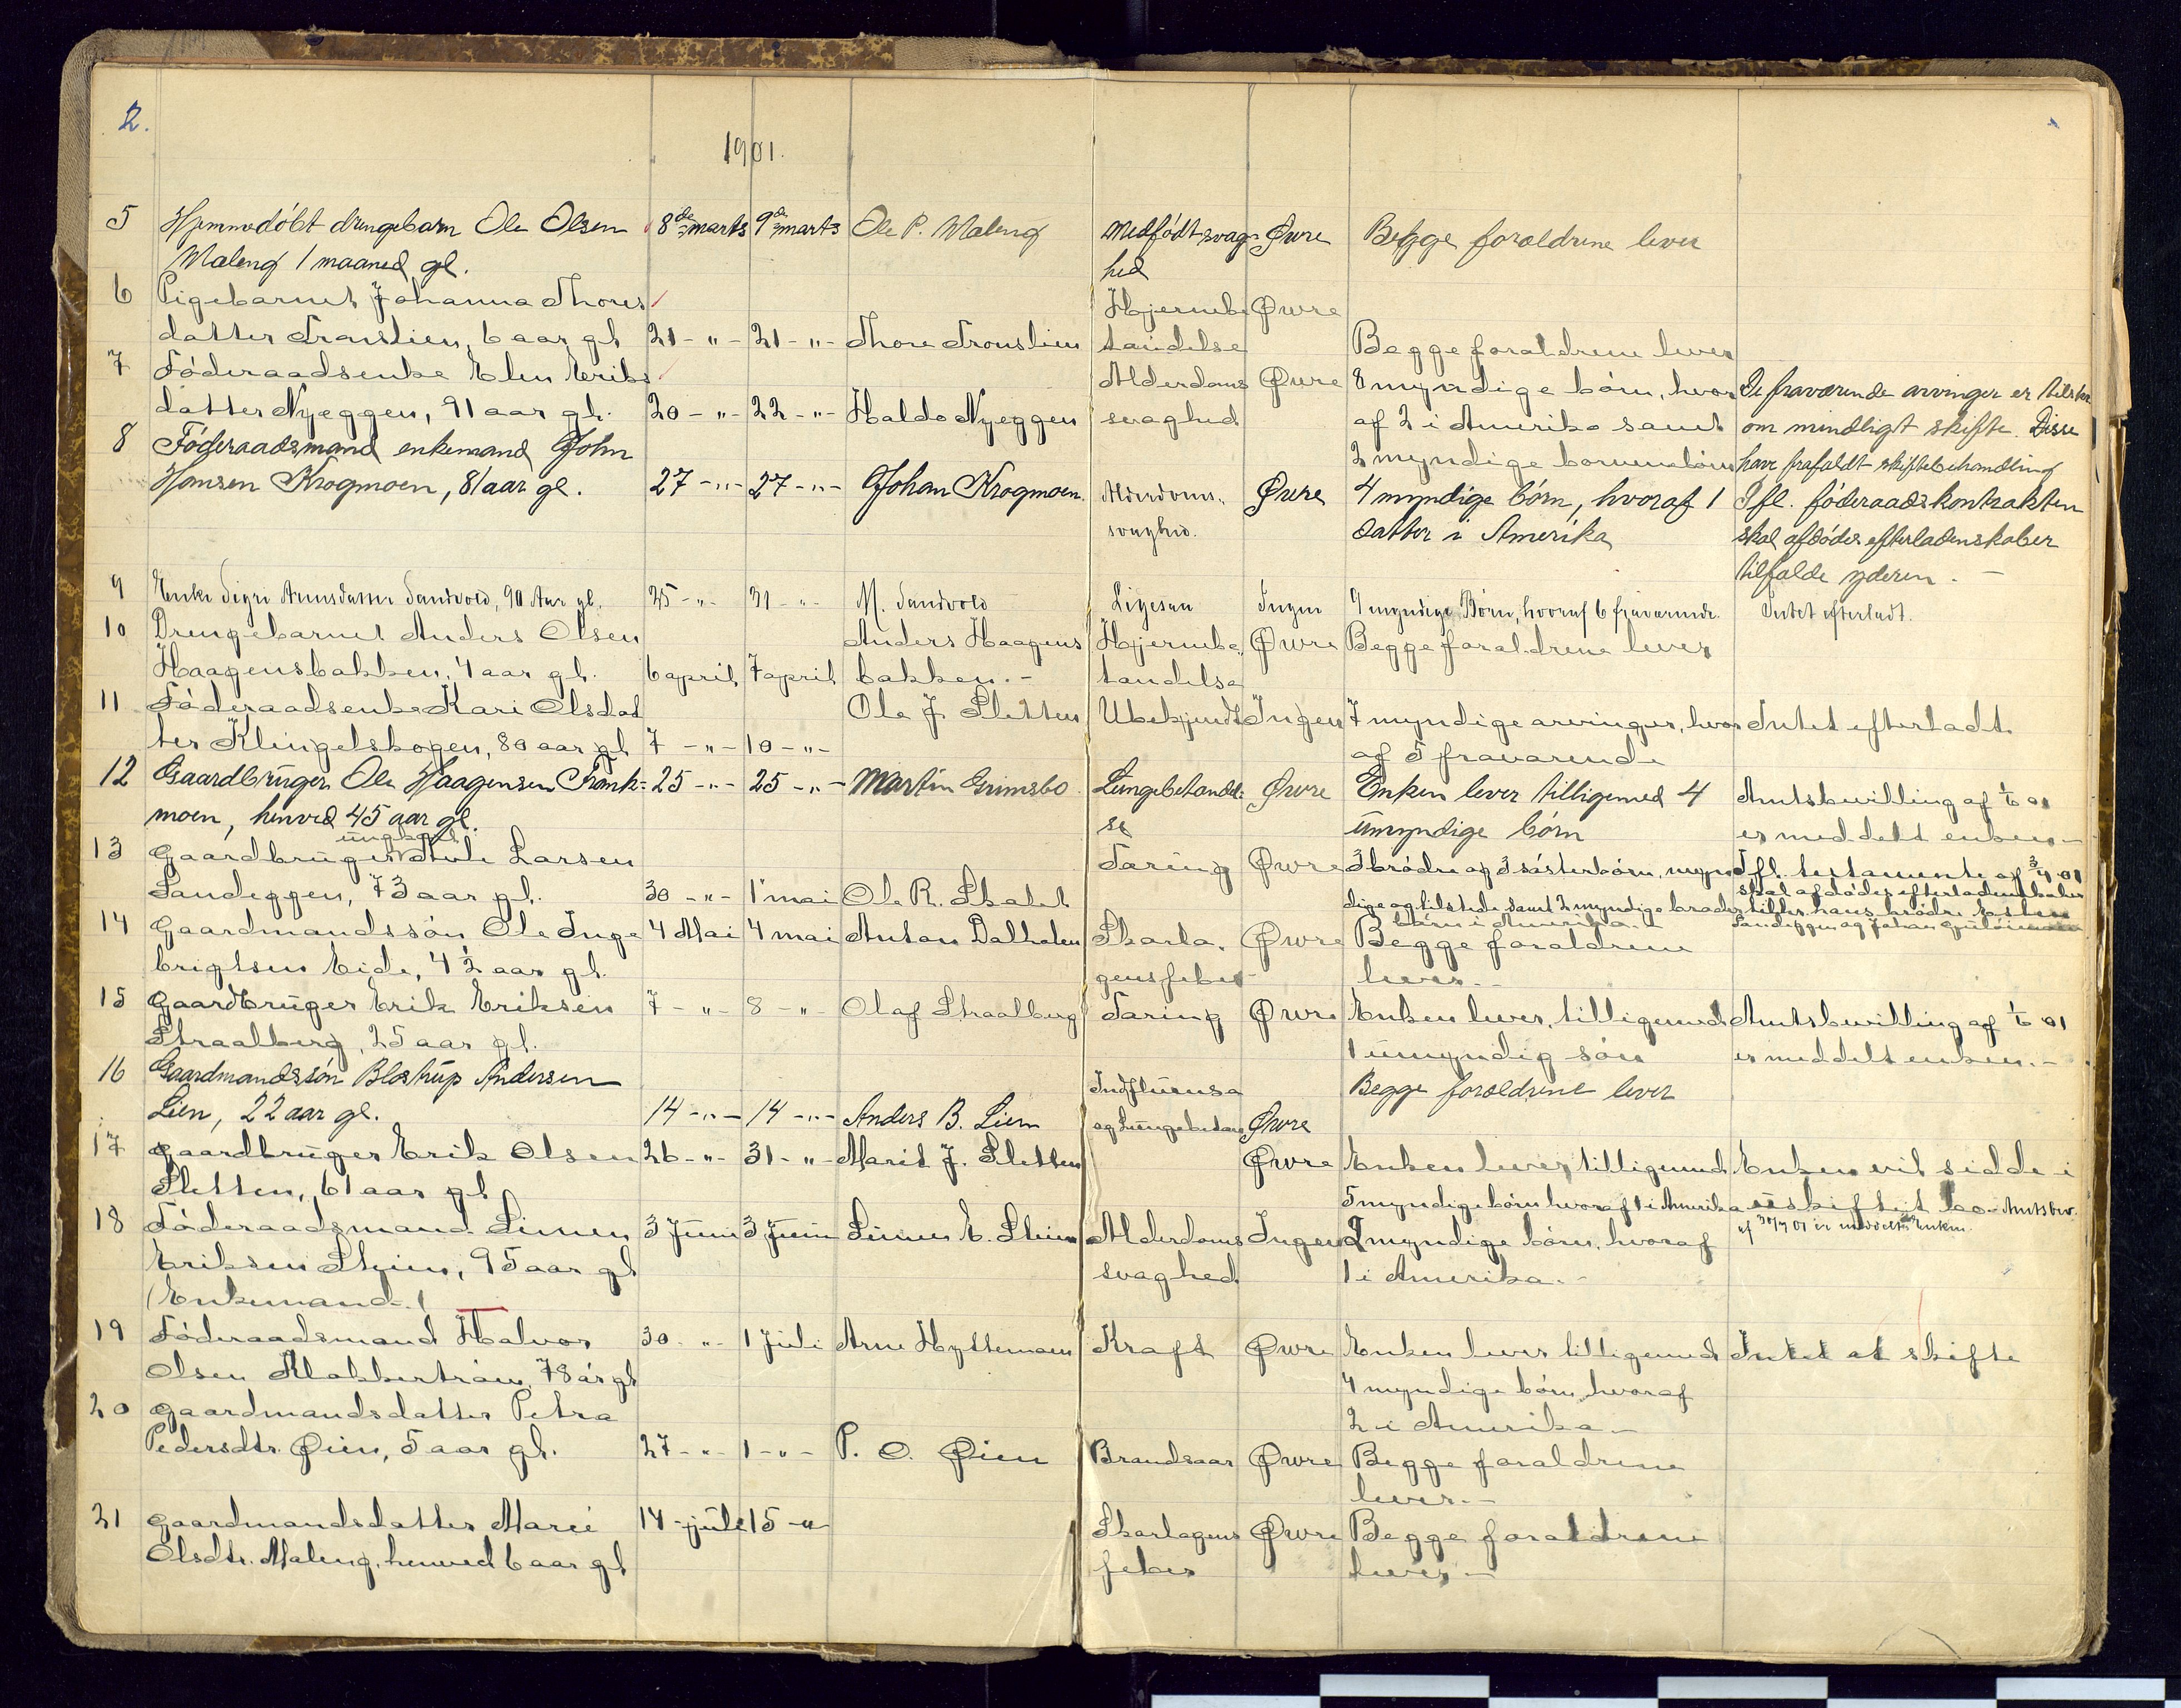 2.
1901.
5 Hjemmedøbt drengebarn Ole Olsen 8de marts 9de marts Ole P. Maleng Medfødt svag- Øvre Begge forældrene lever
Maleng 1 maaned gl. hed
6 Pigebarnet Johanna Thores Hjernebe Øvre
datter Tronslien, 6 aar gl. 21 -"- 21 -"- Thore Tronslien tændelse Begge forældrene lever
7 Føderaadsenke Elen Eriks Alderdoms Øvre 8 myndige børn, hvor De fraværende arvinger er tilskr.
datter Nyeggen, 91 aar gl. 20 -"- 22 -"- Haldo Nyeggen svaghed af 2 i Amerika samt om mindligt skifte. Disse
8 Føderaadsmand enkemand John 2 myndige barnebørn have frafaldt skiftebehandling
Hansen Krogmoen, 81 aar gl. 27 -"- 27 -"- Johan Krogmoen. Alderdoms- Øvre 4 myndige børn, hvoraf 1 Ifl. føderaadskontrakten
svaghed. datter i Amerika skal afdødes efterladenskaber
tilfalde yderen. -
9 Enke Sigri Arnesdatter Sandvold, 90 Aar gl. 25 -"- 31 -"- M. Sandvold Ligesaa Ingen 9 myndige Børn, hvoraf 6 fraværende. Intet efterladt.
10 Drengebarnet Anders Olsen Anders Haagens Hjernebe Øvre Begge forældrene lever
Haagensbakken, 4 aar gl. 6 april 7 april bakken. - tændelse
11 Føderaadsenke Kari Olsdat Ole J. Sletten Ubekjendt Ingen 7 myndige arvinger, hvor Intet efterladt
ter Klingelskogen, 80 aar gl 7 -"- 10 -"- af 5 fraværende
12 Gaardbruger Ole Haagensen Tronk= 25 -"- 25 -"- Martin Grimsbo Lungebetændel= Øvre Enken lever tilligemed 4 Amtsbevilling af 1/6 01
moen, henved 45 aar gl. se umyndige børn er meddelt enken -
ungkarl
13 Gaardbruger Larsen Tæring Øvre 3 brødre og 3 søsterbørn, myn Ifl. testamente af 3/4 01
Sandeggen, 73 aar gl. 30 -"- 1 mai Ole R. Skalet dige og tilstede samt 2 myndige broder skal afdødes efterladenskaber
børn i Amerika tilfer. hans brødre Esten
14 Gaardmandssøn Ole Inge 4 Mai 4 mai Anton Dalholen Skarla. Øvre Begge forældrene Sandeggen og Johan
brigtsen Eide, 4 1/2 aar gl. gensfeber lever. -
15 Gaardbruger Erik Eriksen 7 -"- 8 -"- Olaf Straalberg Tæring Øvre Enken lever, tilligemed Amtsbevilling af 1/6 01
Straalberg, 25 aar gl. 1 umyndig søn er meddelt enken. -
16 Gaardmandssøn Blostrup Andersen Indfluensa Begge forældrene lever
Lien, 22 aar gl. 14 -"- 14 -"- Anders B. Lien og Lungebetænd Øvre
17 Gaardbruger Erik Olsen 26 -"- 31 -"- Marit J. Sletten Øvre Enken lever tilligemed Enken vil sidde i
Sletten, 61 aar gl 5 myndige børn hvoraf 1 i Amerika uskiftet bo. - Amtsbev.
18 Føderaadsmand Simen 3 Juni 3 Juni Simen E. Steien Alderdoms Ingen 2 myndige børn, hvoraf af 30/7 01 er meddelt Enken.
Eriksen Steien, 95 aar gl svaghed 1 i Amerika. -
(Enkemand.)
19 Føderaadsmand Halvor 30 -"- 1 juli Arne Hyttemoen Kræft Øvre Enken lever tilligemed Intet at skifte
Olsen Klokkertrøen, 78 år gl 4 myndige børn, hvoraf
20 Gaardmandsdatter Petra 2 i Amerika -
Pedersdtr. Øien, 5 aar gl. 27 -"- 1 -"- P. O. Øien Brandsaar Øvre Begge forældrene
lever. -
21 Gaardmandsdatter Marie 14 - juli 15 -"- Skarlagens Øvre Begge forældrene
Olsdtr. Maleng, henved 6 aar gl feber lever, -